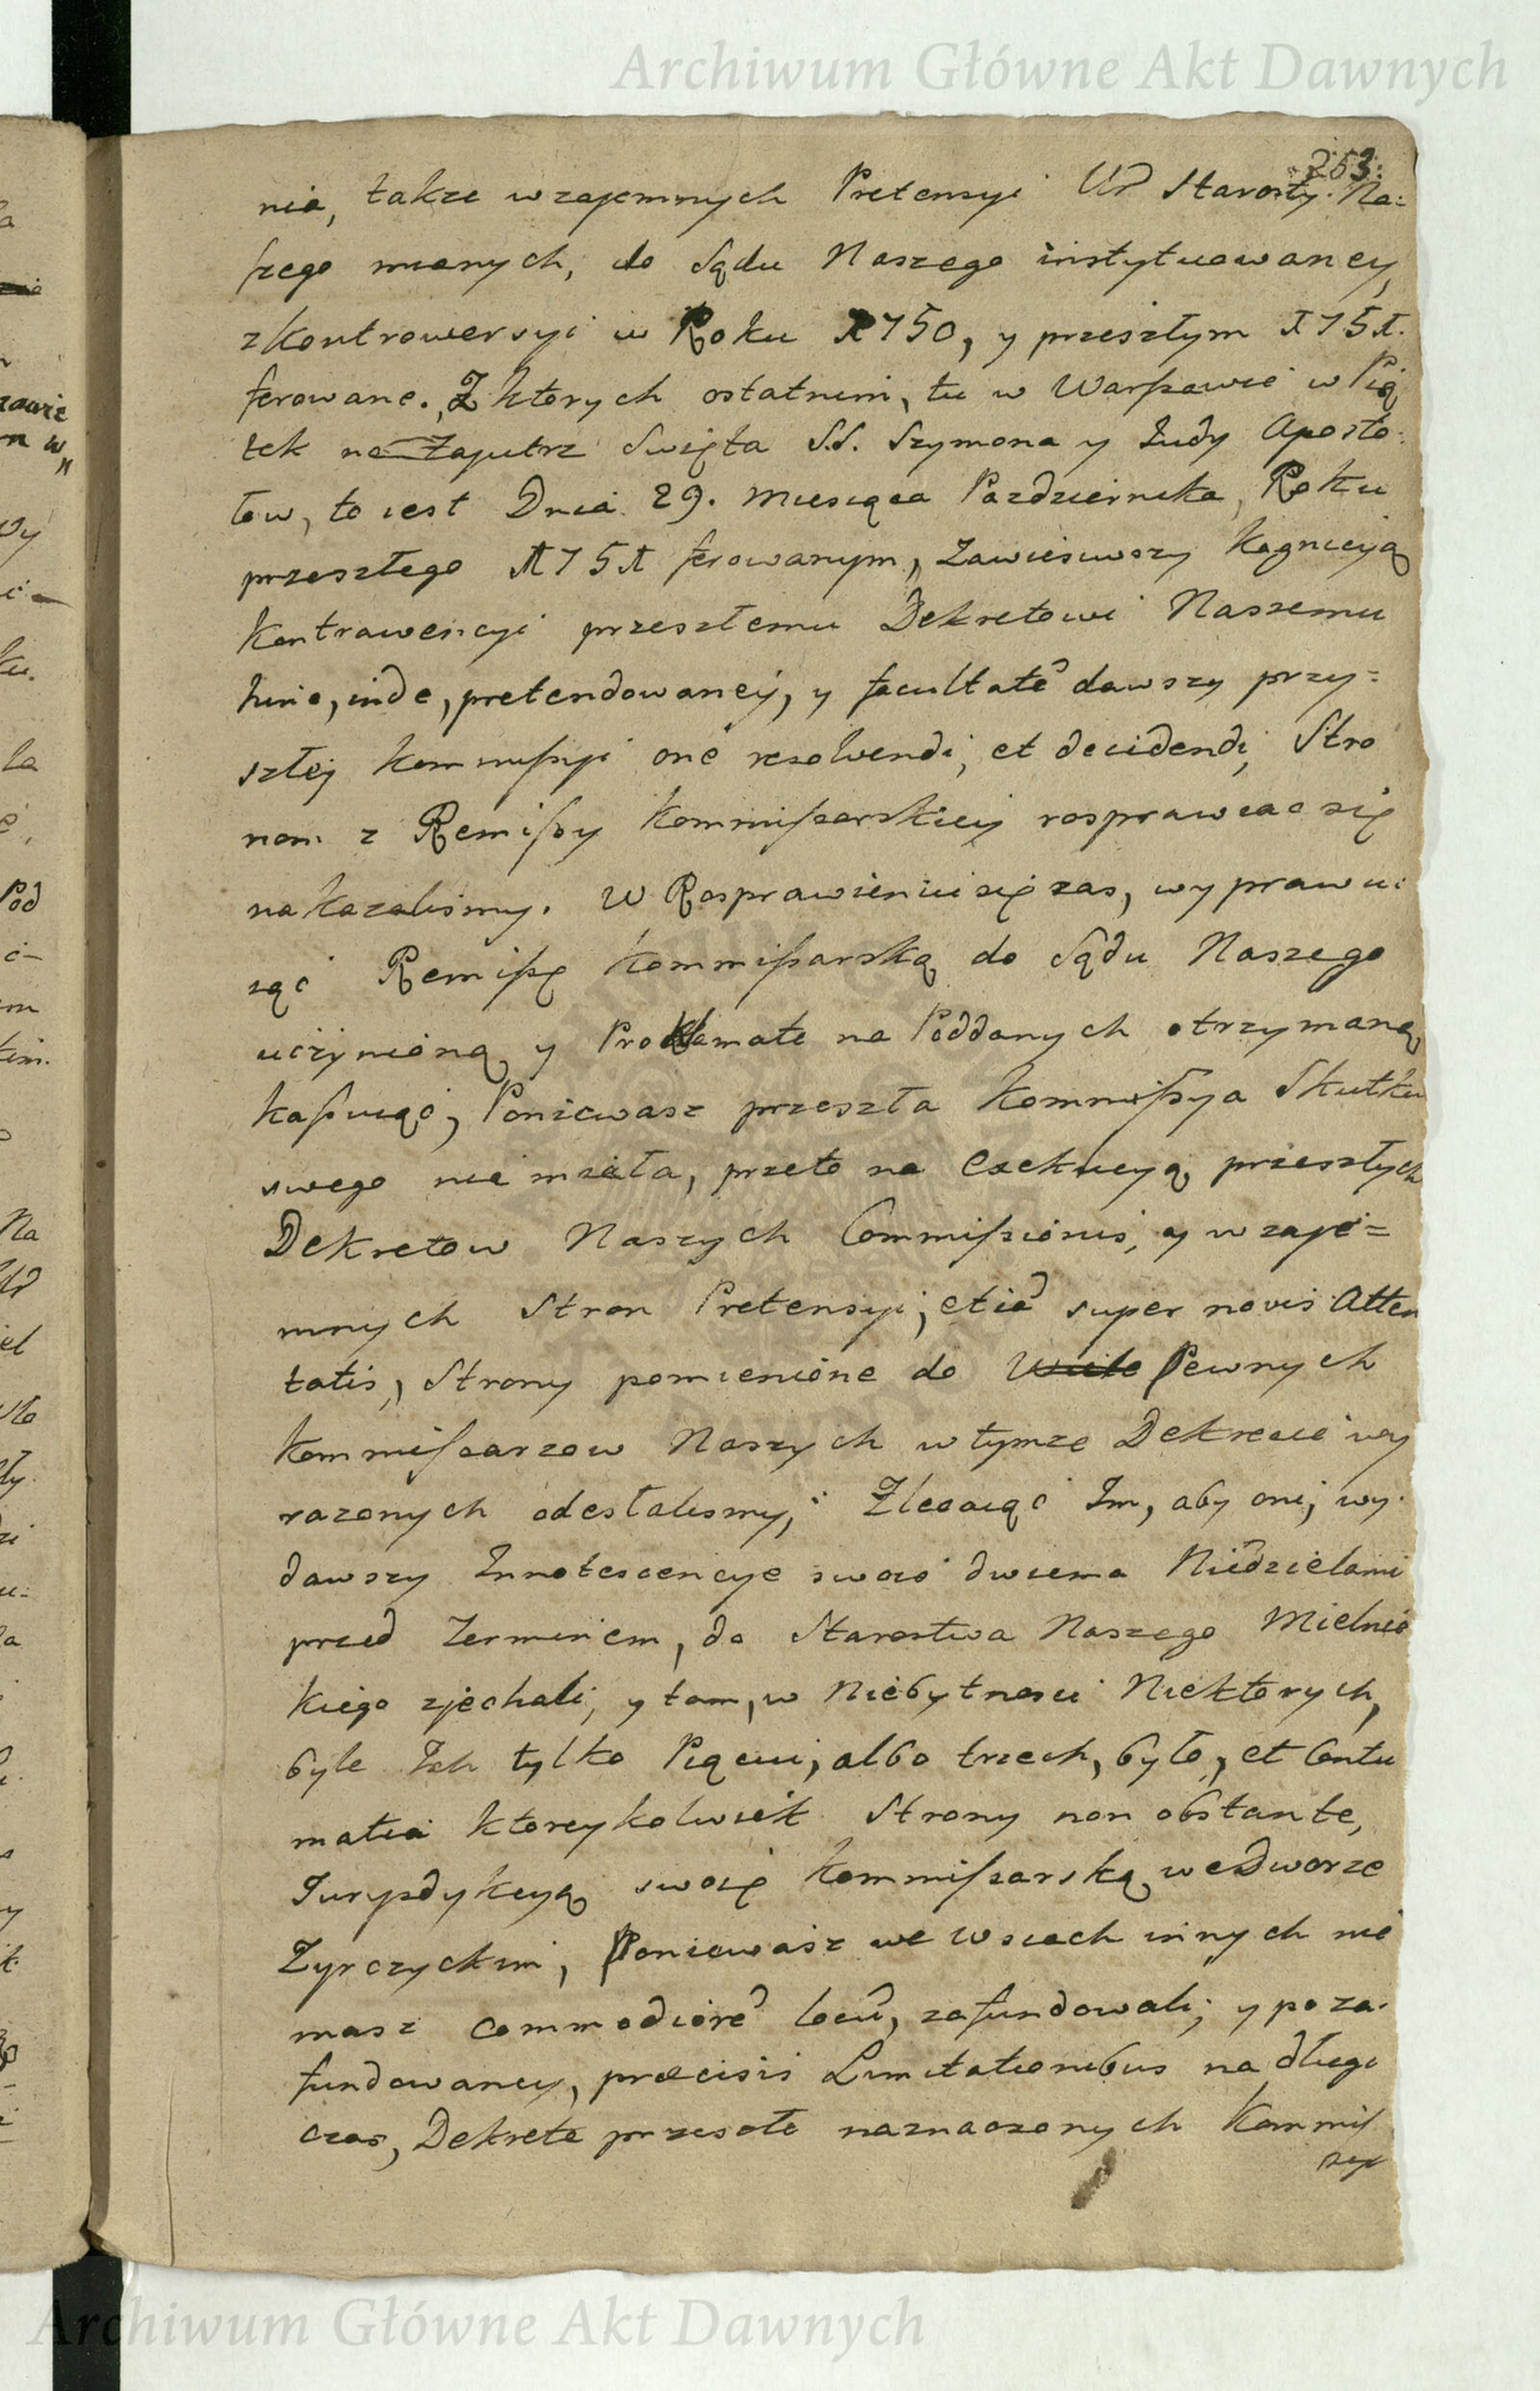 Archiwum Główne Akt Dawnych
253.
nia, takze wzajemnych Pretensyi Ur Starosty Na:
szego mianych, do Sądu Naszego instytuowaney,
z kontrowersyi w Roku 1750, y przeszłym 1751.
ferowane. Z ktorych ostatnim, tu w Warszawie w Pią
tek na Zajutrz Swięta S.S. Szymona y Judy Aposto:
łow, to iest Dnia 29. Miesiąca Pazdziernika, Roku
przeszłego 1751 ferowanym, Zawiesiwszy kognicyą
Kontrawencyi przeszłemu Dekretowi Naszemu
hinc, inde, pretendowaney, y facultatē dawszy przy=
szłey kommissyi one resolvendi, et decidendi, Stro
nom z Remissy kommissarskiey rosprawiac się
nakazalismy. W Rosprawieniu się zas, wyprawu:
iąc Remissę kommissarską do Sądu Naszego
uczynioną y Proklamate na Poddanych otrzymaną
kassuiąc, Poniewasz przeszła kommissya Skutku
swego nie miała, przeto na Exekucyą przeszłych
Dekretow Naszych Commissionis, y wzaje=
mnych Stron Pretensyi, etiā super novis Atten
tatis, Strony pomienione do Wiele Pewnych
kommissarzow Naszych w tymze Dekrecie wy
razonych odesłalismy, Zlecaiąc Im, aby oni, wy:
dawszy Innotescencye swoie dwiema Niedzielami
przed Terminem, do Starostwa Naszego Mielnic
kiego zjechali, y tam, w Niebytnosci Niektorych,
byle Ich tylko Pięciu, albo trzech, było, et Contu
matia ktoreykolwiek Strony non obstante,
Jurysdykcyą swoię kommissarską we Dworze
Zyrczyckim, Poniewasz we Wsiach innych nie
masz commodiorē locū, zafundowali; y po za:
fundowaney, præcisis Limitationibus na długi
czas, Dekreta przeszłe naznaczonych Kommis
syi
Archiwum Główne Akt Dawnych